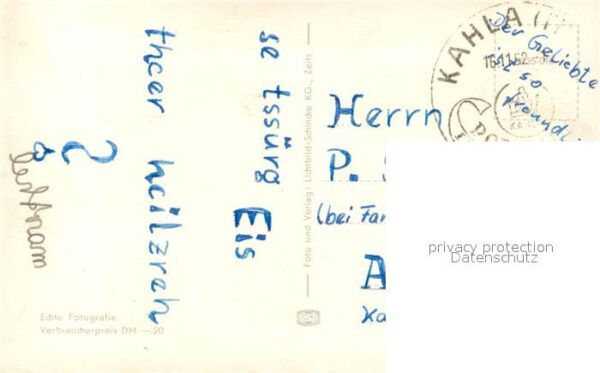 thcer hcilzreh
se tssürg Eis
?
Echte Fotografie
Verbraucherpreis DM —.20
Foto und Verlag: Lichtbild-Schincke KG., Zeitz
KAHLA (TH
16.11.62
Der Geliebte
ist so
freundli
Herrn
P.
(bei Fam
A
Ka
privacy protection
Datenschutz